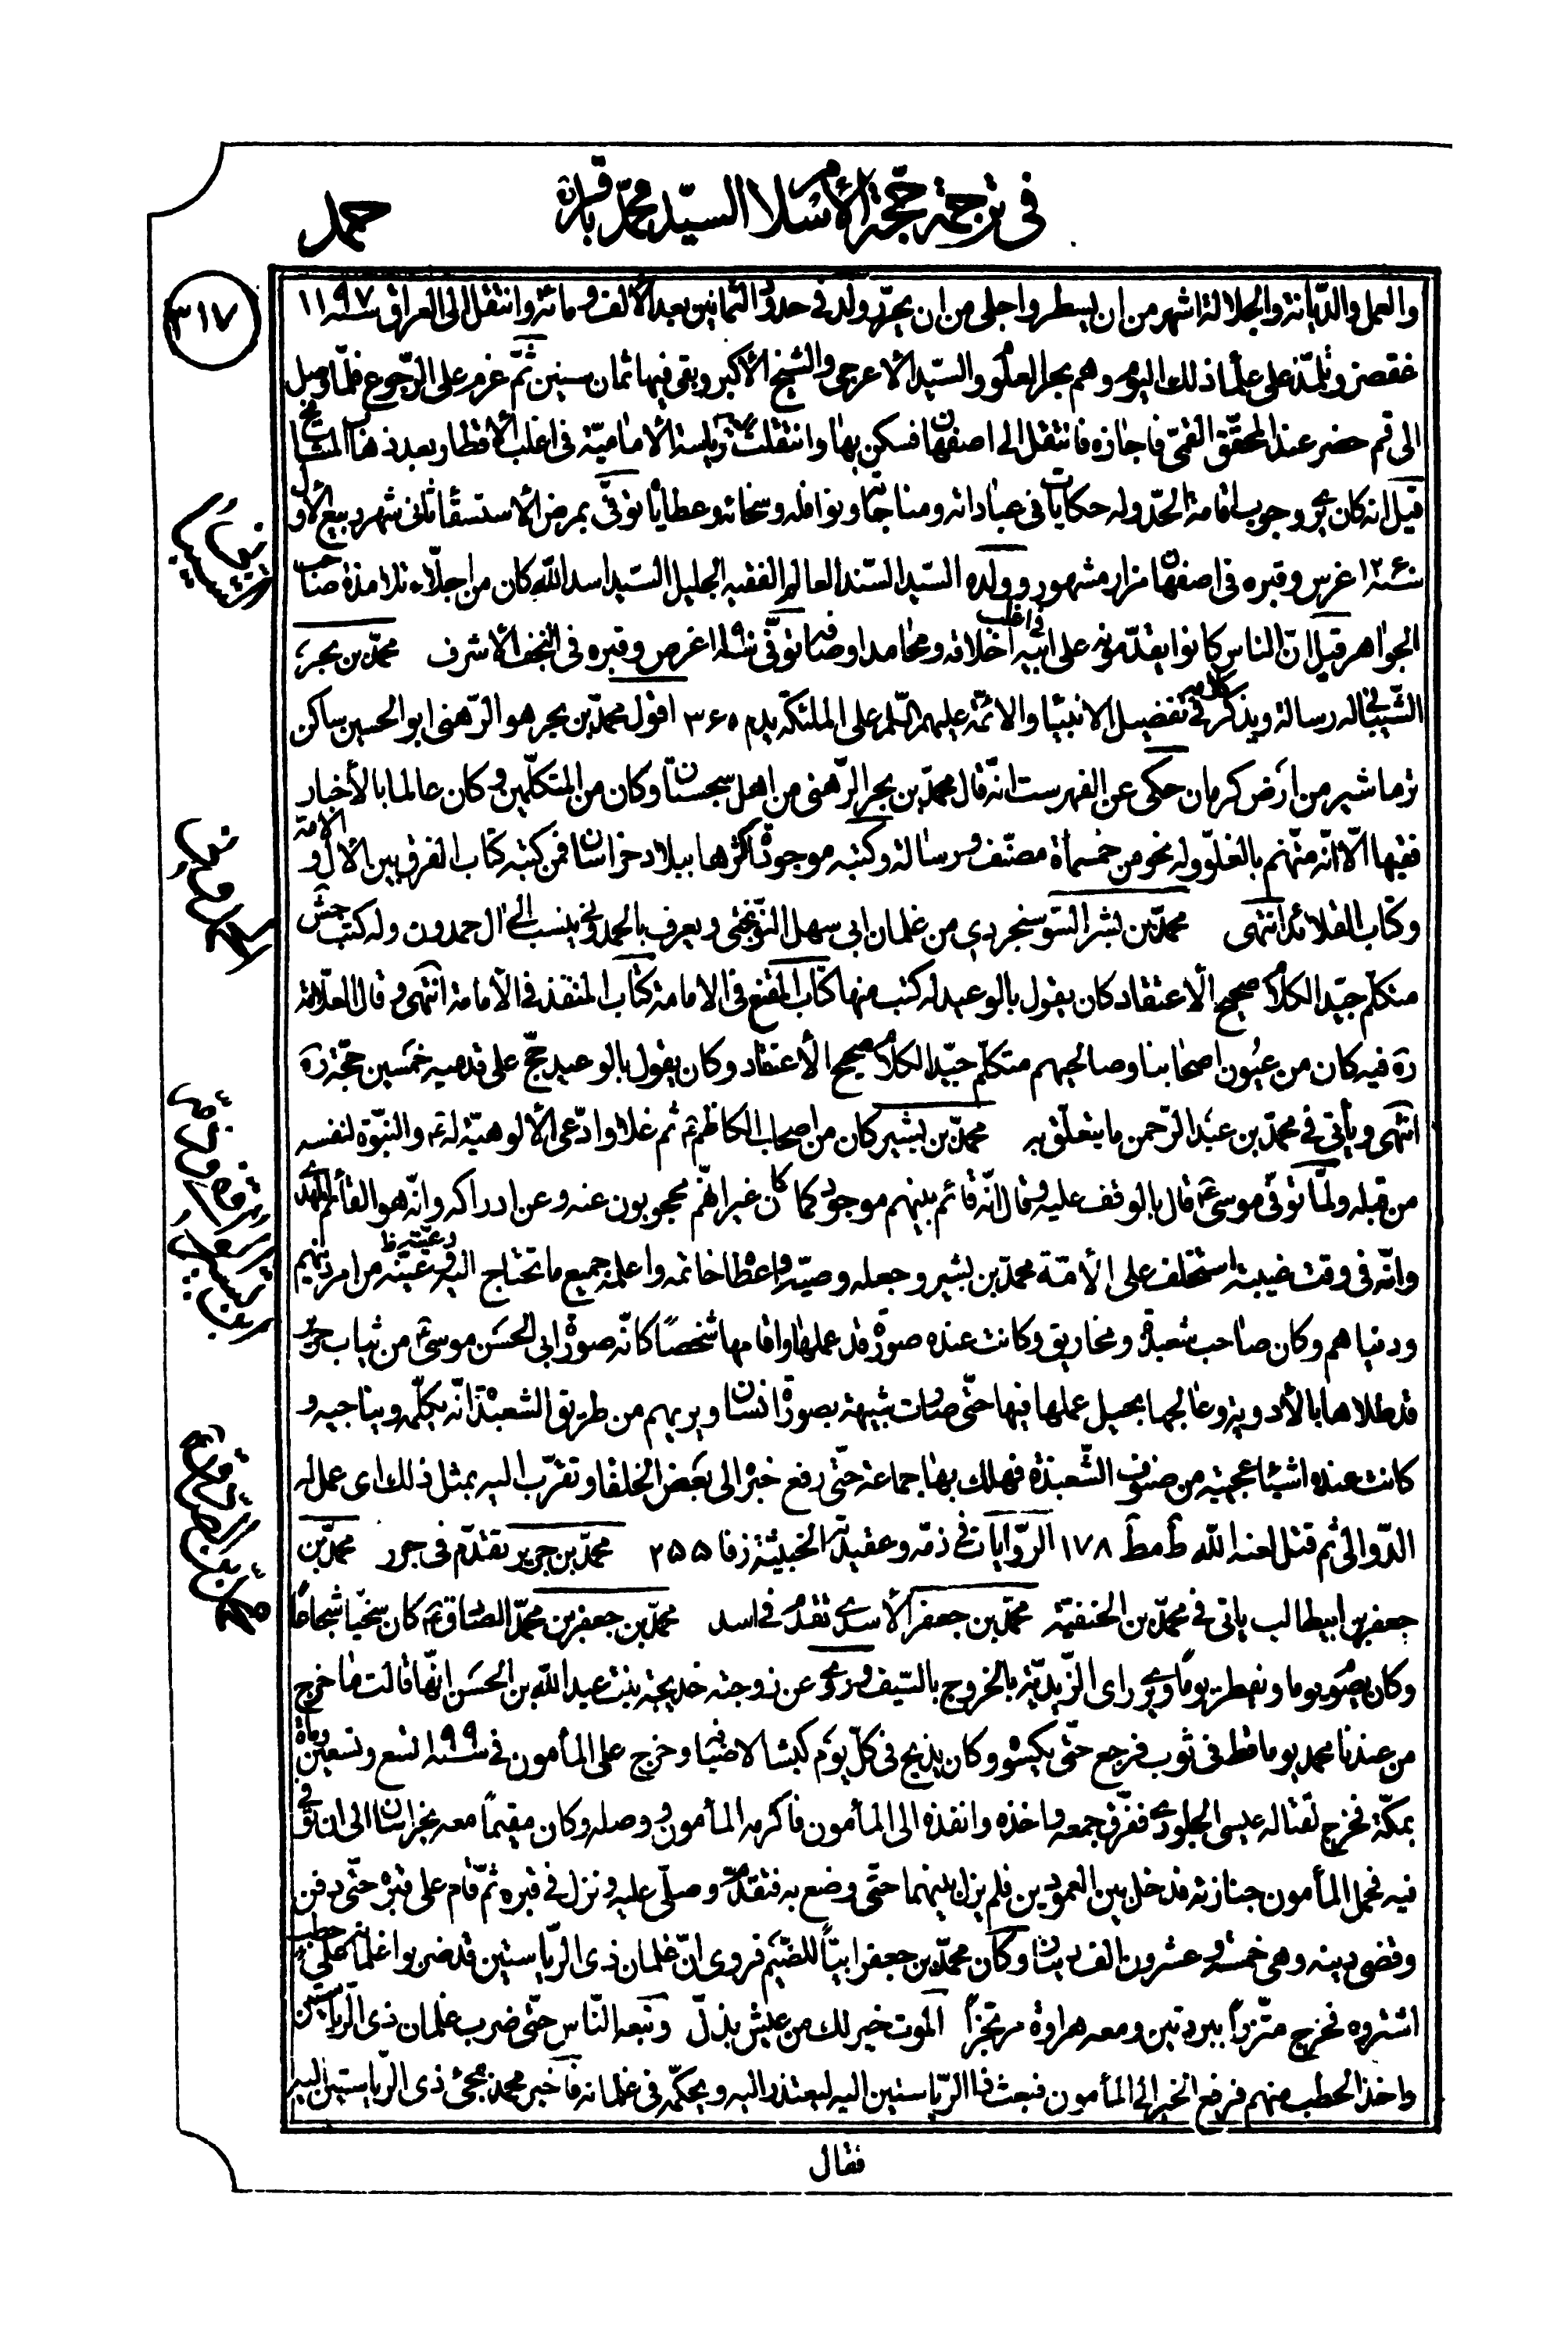 في ترجمة حجة الأسلام السيّد محمّد باقر ره
حمد
٣١٧
والعمل والدّيانة والجلالة اشهر من ان يسطر واجلى من ان يحرّر ولد في حدود الثمانين بعد الألف ومائة وانتقل الى العراق سنة ١١٩٧
غقصز وتلمّذ على علماء ذلك اليوم وهم بحر العلوم والسيّد الأعرجي والشيخ الأكبر وبقى فيها ثمان سنين ثمّ عزم على الرّجوع فلمّا وصل
الى قم حضر عند المحقّق القمّي فاجازه فانتقل الى اصفهان فسكن بها وانتقلت رياسة الأماميّة في اغلب الأقطار بعد ذهاب المشايخ
قيل انه كان يرى وجوب اقامة الحدّ وله حكايات في عباداته ومناجاته ونوافله وسخائه وعطاياه توفّي بمرض الأستسقاء ثاني شهر ربيع الأول
سنة ١٢٦٠ غرس وقبره في اصفهان مزار مشهور وولده السيّد السّند العالم الفقيه الجليل السيّد اسد الله كان من اجلّاء تلامذة صاحب
الجواهر قيل انّ الناس كانوا يقدّمونه على ابيه في اغلب اخلاقه ومحامد اوصافه توفّي سنة ١٢٩٠ غرص وقبره في النّجف الأشرف محمّد بن بحر
الشّيباني له رسالة ويذكر كلامه في تفضيل الانبياء والائمّة عليهم السّلم على الملئكة يدم ٣٦٥ اقول محمّد بن بحر هو الرّهني ابو الحسين ساكن
ترماشير من ارض كرمان حكى عن الفهرست انّه قال محمّد بن بحر الرّهني من اهل سجستان وكان من المتكلّمين وكان عالما بالأخبار
فقيها الّا انّه متّهم بالغلوّ وله نحو من خمسمأة مصنّف ورسالة وكتبه موجودة اكثرها ببلاد خراسان فمن كتبه كتاب الفرق بين الآل والامة
وكتاب القلائد انتهى محمّد بن بشر السّوسنجردي من غلمان ابي سهل النّوبختي ويعرف بالحمدوني ينسب الى ال حمدون وله كتب جش
متكلّم جيّد الكلام صحيح الأعتقاد كان يقول بالوعيد له كتب منها كتاب المقنع في الامامة كتاب المنقذ في الأمامة انتهى وقال العلّامة
ره فيه كان من عيون اصحابنا وصالحيهم متكلّم جيّد الكلام صحيح الأعتقاد وكان يقول بالوعيد حجّ على قدميه خمسين حجّة ره
انتهى ويأتي في محمّد بن عبد الرّحمن ما يتعلّق به محمّد بن بشير كان من اصحاب الكاظم ع ثم غلا وادّعى الألوهيّة له ع والنبوّة لنفسه
من قبله ولمّا توفّي موسى ع قال بالوقف عليه وقال انّه قائم بينهم موجود كما كان غير انّهم محجوبون عنه وعن ادراكه وانّه هو القائم المهدي
وانّه في وقت غيبته استخلف على الأمّة محمّد بن بشير وجعله وصيّه واعطاه خاتمه واعلمه جميع ما تحتاج اليه رعيّته من امر دينهم
ودنياهم وكان صاحب شعبذة ومخاريق وكانت عنده صورة قد عملها واقامها شخصًا كانّه صورة ابي الحسن موسى ع من ثياب حرير
قد طلاها بالأدوية وعالجها بحيل عملها فيها حتّى صارت شبيهة بصورة انسان ويريهم من طريق الشّعبذة انّه يكلّمه ويناجيه و
كانت عنده اشياء عجيبة من صنوف الشّعبذة فهلك بها جماعة حتّى رفع خبره الى بعض الخلفاء وتقرّب اليه بمثل ذلك اى عمل له
الدّوالي ثم قتل لعنه الله ط مط ١٧٨ الرّوايات في ذمّه وعقيدته الخبيثة زفا ٢٥٥ محمّد بن جرير تقدّم في جرر محمّد بن
جعفر بن ابيطالب ياتي في محمّد بن الحنفيّة محمّد بن جعفر الأسدي تقدّم في اسد محمّد بن جعفر بن محمّد الصّادق ع كان سخيّا شجاعًا
وكان يصوم يوما ويفطر يومًا ويرى راى الزّيديّة بالخروج بالسّيف وروى عن زوجته خديجة بنت عبد الله بن الحسن انّها قالت ما خرج
من عندنا محمد يوما قط في ثوب فرجع حتّى يكسوه وكان يذبح في كلّ يوم كبشا لاضيافه وخرج على المأمون في سنة ١٩٩ تسع وتسعين ومأة
بمكّة فخرج لقتاله عيسى الجلودي ففرّق جمعه واخذه وانفذه الى المأمون فاكرمه المأمون ووصله وكان مقيمًا معه بخراسان الى ان توفي
فيه فحمل المأمون جنازته فدخل بين العمودين فلم يزل بينهما حتّى وضع به فتقدّم وصلّى عليه ونزل في قبره ثمّ قام على قبره حتّى دفن
وقضى دينه وهي خمسة وعشرون الف دينار وكان محمّد بن جعفر ابيّاً للضّيم فروى انّ غلمان ذي الرّياستين قد ضربوا غلمانه على حطب
اشتروه فخرج متّزرًا ببردتين ومعه هراوة مرتجزًا الموت خير لك من عيش بذلّ وتبعه النّاس حتّى ضرب غلمان ذي الرياستين
واخذ الحطب منهم فرفع الخبر الى المأمون فبعث ذا الرّياستين اليه ليعتذر اليه ويحكّمه في غلمانه فاخبر محمد بمجئ ذي الرّياستين اليه
فقال